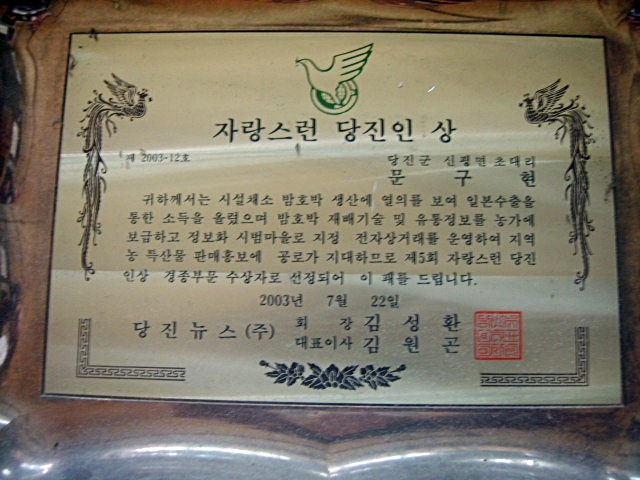 자랑스런 당진인 상
제 2003-12호
당진군 신평면 초대리
문 구 현
귀하께서는 시설채소 밤호박 생산에 열의를 보여 일본수출을
통한 소득을 올렸으며 밤호박 재배기술 및 유통정보를 농가에
보급하고 정보화 시범마을로 지정 전자상거래를 운영하여 지역
농 특산물 판매홍보에 공로가 지대하므로 제5회 자랑스런 당진
인상 경종부문 수상자로 선정되어 이 패를 드립니다.
2003년 7월 22일
당진뉴스(주) 회 장 김성환
대표이사 김원곤